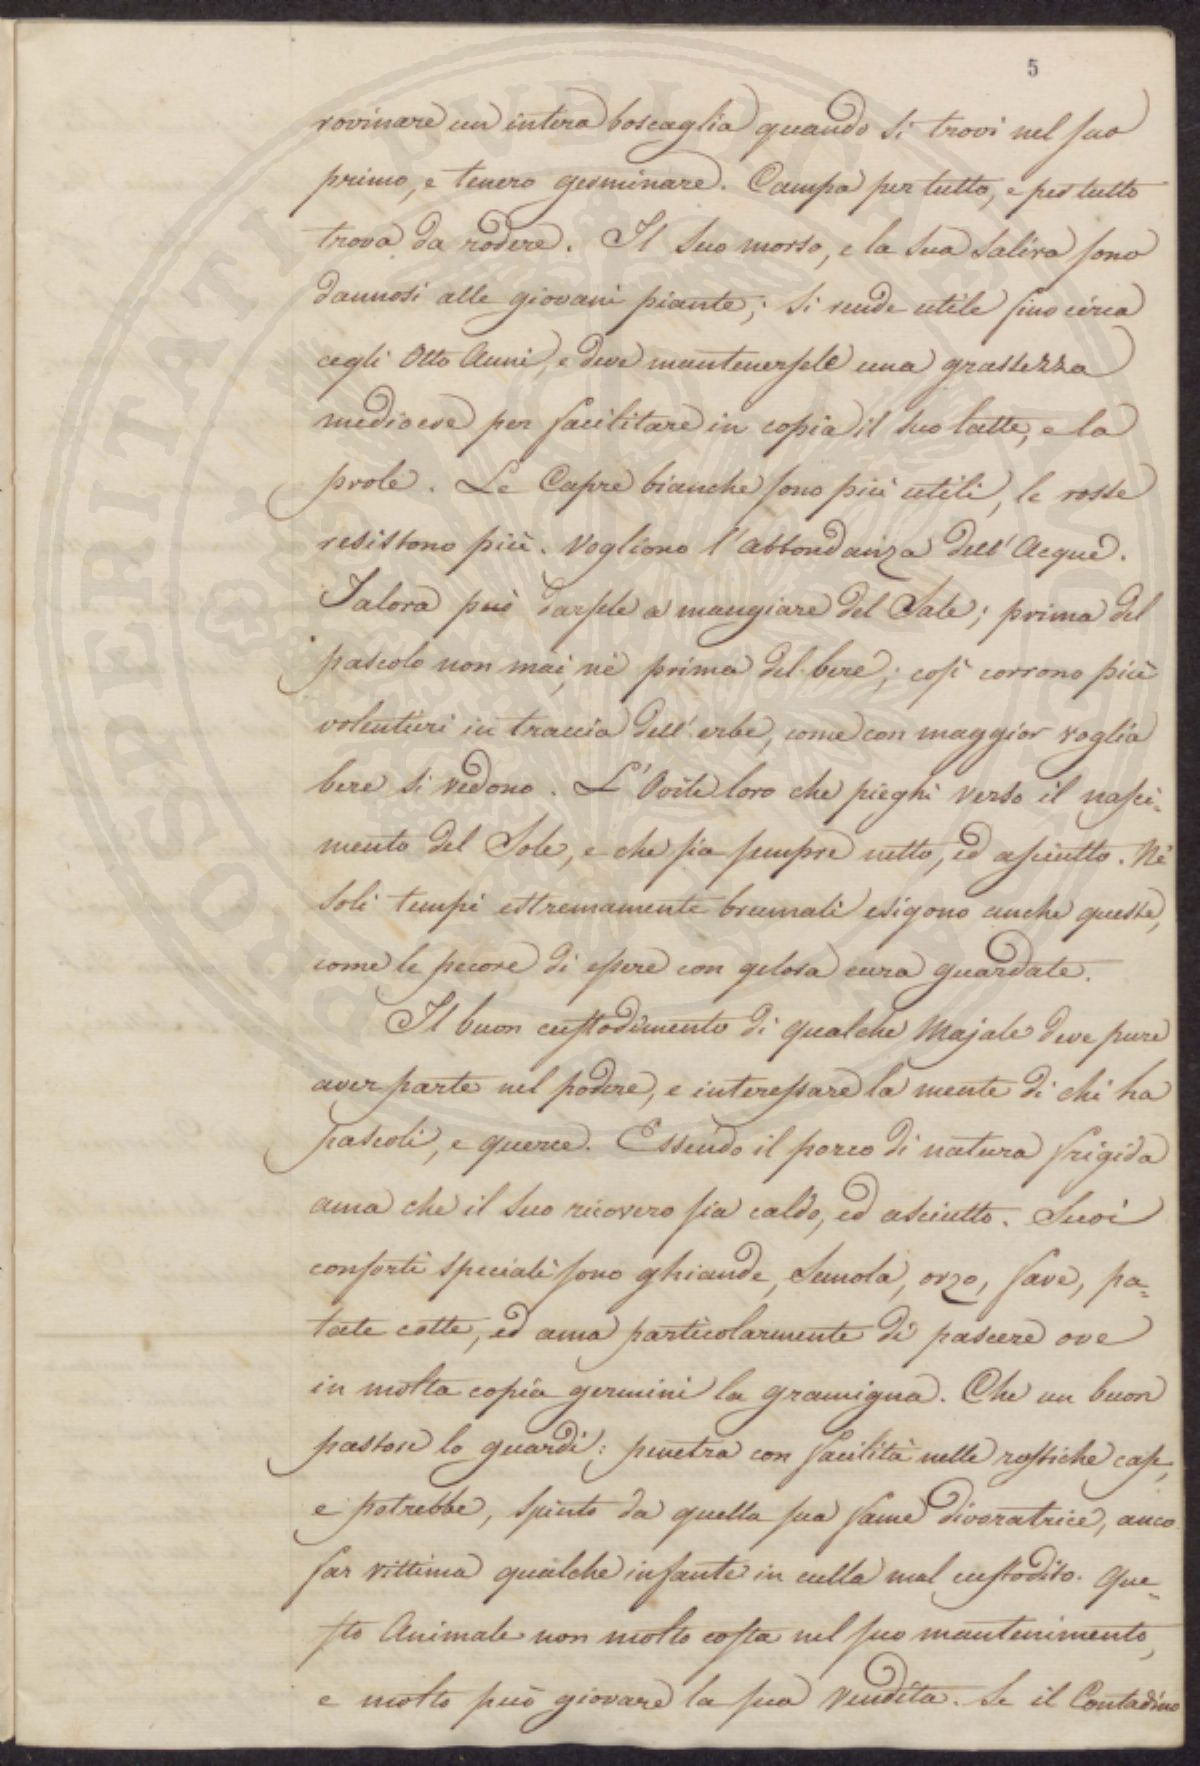 5
rovinare un intera boscaglia quando si trovi nel suo
primo, e tenero germinare. Campa per tutto, e per tutto
trova da rodere. Il suo morso, e la sua saliva sono
dannosi alle giovani piante; si rende utile sino circa
cegli Otto Anni, e deve mantenersele una grassezza
mediocre per facilitare in copia il suo latte, e la
prole. Le Capre bianche sono più utili, le rosse
resistono più. Vogliono l'abbondanza dell'Acque.
Talora può darsele a mangiare del Sale; prima del
pascolo non mai, nè prima del bere; così corrono più
volentieri in traccia dell'erbe, come con maggior voglia
bere si vedono. L'Ovile loro che pieghi verso il nasci-
mento del Sole, e che sia sempre netto, ed asciutto. Nè
soli tempi estremamente brumali esigono anche queste,
come le pecore di essere con gelosa cura guardate.
Il buon custodimento di qualche Majale deve pure
aver parte nel podere, e interessare la mente di chi ha
pascoli, e querce. Essendo il porco di natura frigida
ama che il suo ricovero sia caldo, ed asciutto. Suoi
conforti speciali sono ghiande, Semola, orzo, fave, pa-
tate cotte, ed ama particolarmente di pascere ove
in molta copia germini la gramigna. Che un buon
pastore lo guardi; penetra con facilità nelle rustiche case,
e potrebbe, spinto da quella sua fame divoratrice, anco
far vittima qualche infante in culla mal custodito. Que-
sto Animale non molto costa nel suo mantenimento,
e molto può giovare la sua vendita. Se il Contadino
PROSPERITATI PVBLICAE AVGENDAE